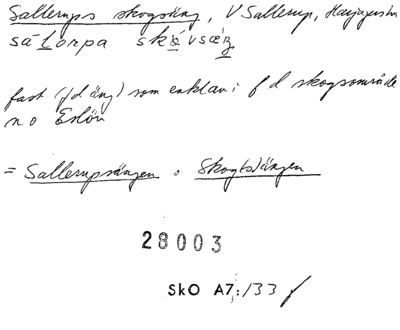 Sallerups skogsäng, V Sallerup, Harjagers hd
sálòrpa skòvsæŋ
fast (f d äng) som enklav i f d skogsområde
n o Eslöv
= Sallerupsängen o Skogtsängen
28003
SkO A7:/33